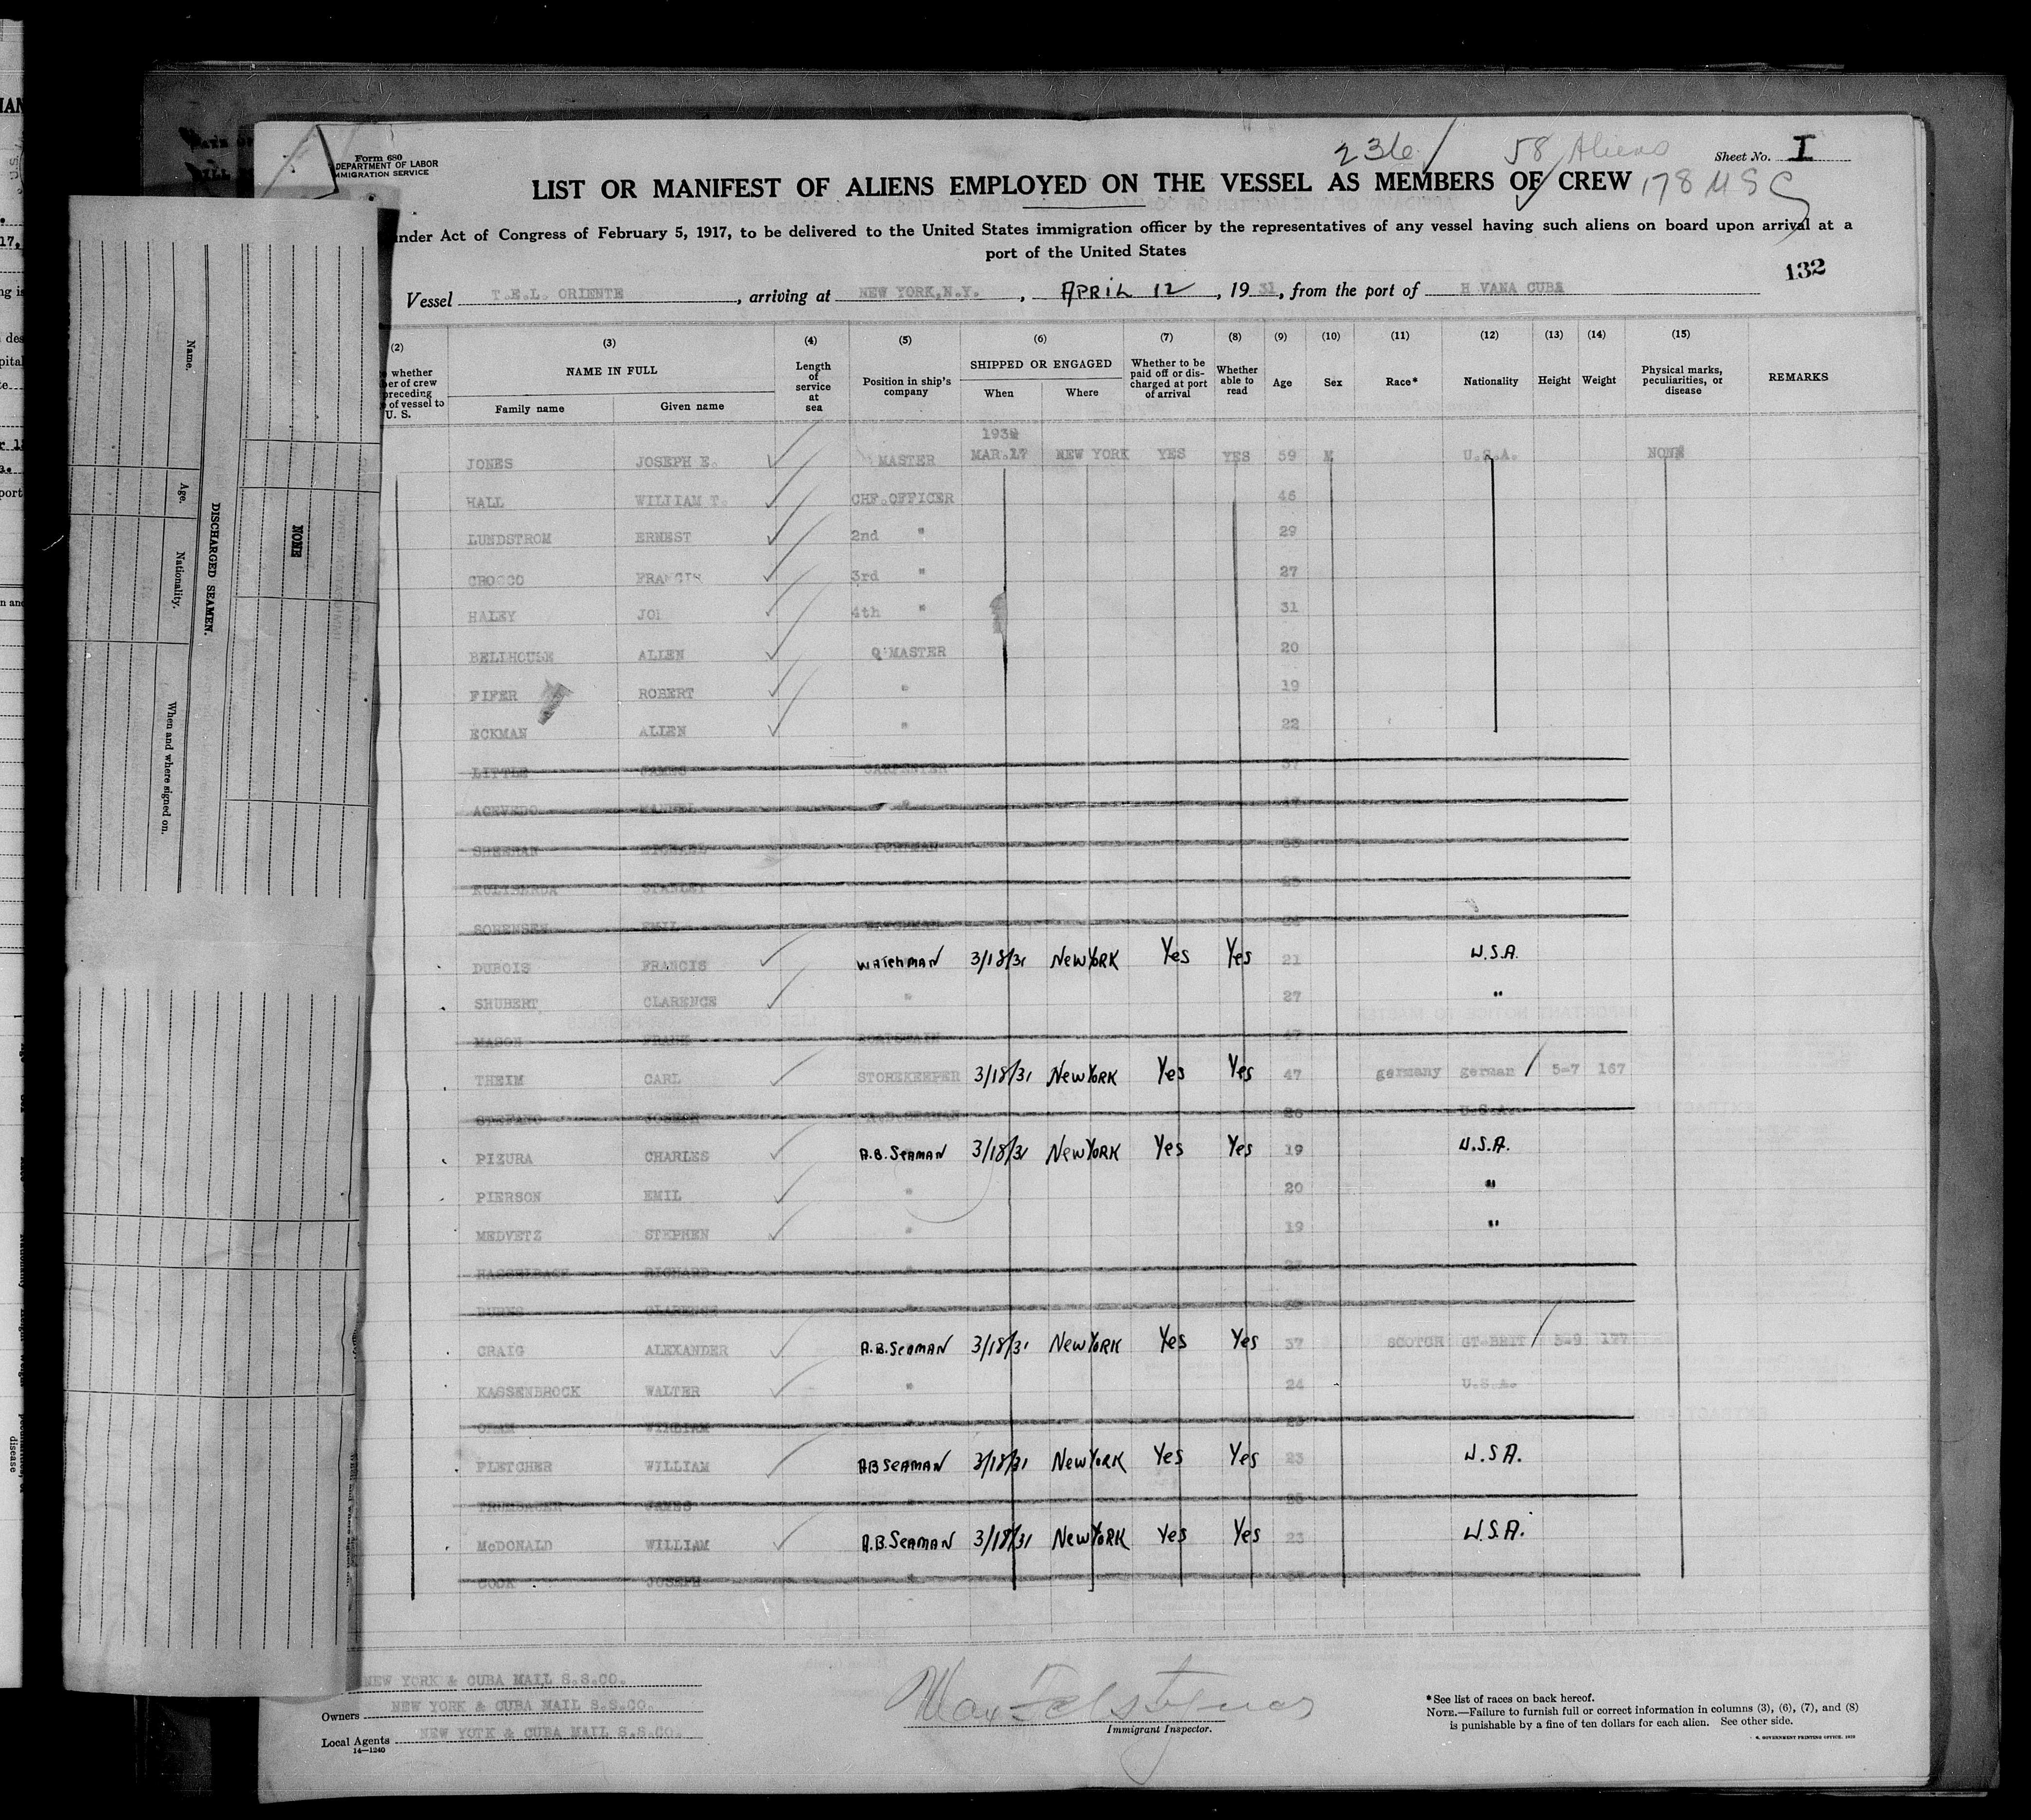 236 / 58 Aliens
Sheet No. I
Form 680
DEPARTMENT OF LABOR
IMMIGRATION SERVICE
LIST OR MANIFEST OF ALIENS EMPLOYED ON THE VESSEL AS MEMBERS OF CREW 178 USC
under Act of Congress of February 5, 1917, to be delivered to the United States immigration officer by the representatives of any vessel having such aliens on board upon arrival at a
port of the United States
132
Vessel T.E.L. ORIENTE, arriving at NEW YORK,N.Y., APRIL 12, 1931, from the port of H VANA CUBA
(2) (3) (4) (5) (6) (7) (8) (9) (10) (11) (12) (13) (14) (15)
whether
er of crew
preceding
of vessel to
U. S.
NAME IN FULL
Family name Given name
Length
of
service
at
sea
Position in ship's
company
SHIPPED OR ENGAGED
When Where
Whether to be
paid off or dis-
charged at port
of arrival
Whether
able to
read
Age Sex Race* Nationality Height Weight
Physical marks,
peculiarities, or
disease
REMARKS
JONES JOSEPH E. MASTER 193 MAR.17 NEW YORK YES YES 59 M U.S.A. NONE
HALL WILLIAM T. CHF.OFFICER 46
LUNDSTROM ERNEST 2nd " 29
CROCCO FRANCIS 3rd " 27
HALEY JO 4th " 31
BELLHOUSE ALLEN Q'MASTER 20
FIFER ROBERT " 19
ECKMAN ALLEN " 22
LITTLE JAMES CARPENTER 37
ACEVEDO MANUEL "
SHEEHAN MICHAEL
STANLEY
SORENSEN EMIL WATCHMAN
DUBOIS FRANCIS WATCHMAN 3/18/31 NEW YORK Yes Yes 21 U.S.A.
SHUBERT CLARENCE " 27 "
MASON FRANK BOATSWAIN 47
THEIM CARL STOREKEEPER 3/18/31 NEW YORK Yes Yes 47 germany german / 5-7 167
STEFANO JOSEPH A.B.SEAMAN 26 U.S.A.
PIZURA CHARLES A.B. SEAMAN 3/18/31 NEW YORK Yes Yes 19 U.S.A.
PIERSON EMIL " 20 "
MEDVETZ STEPHEN " 19 "
HASSELBACH RICHARD "
BURNS CLARENCE "
CRAIG ALEXANDER A.B. SEAMAN 3/18/31 NEW YORK Yes Yes 37 SCOTCH GT BRIT / 5-9 177
KASSENBROCK WALTER " 24 U.S.A.
ORAM WILLIAM "
FLETCHER WILLIAM AB SEAMAN 3/18/31 NEW YORK Yes Yes 23 U.S.A.
JAMES " 25
McDONALD WILLIAM A.B. SEAMAN 3/18/31 NEW YORK Yes Yes 23 U.S.A.
COOK JOSEPH "
NEW YORK & CUBA MAIL S.S.CO.
Owners NEW YORK & CUBA MAIL S.S.CO.
Local Agents NEW YOTK & CUBA MAIL S.S.CO.
14—1240
Immigrant Inspector.
*See list of races on back hereof.
NOTE.—Failure to furnish full or correct information in columns (3), (6), (7), and (8)
is punishable by a fine of ten dollars for each alien. See other side.
GOVERNMENT PRINTING OFFICE
Name.
Age.
Nationality.
When and where signed on.
DISCHARGED SEAMEN.
NONE
disease